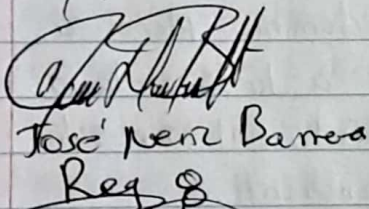 José Neriz Barrera
Reg 8